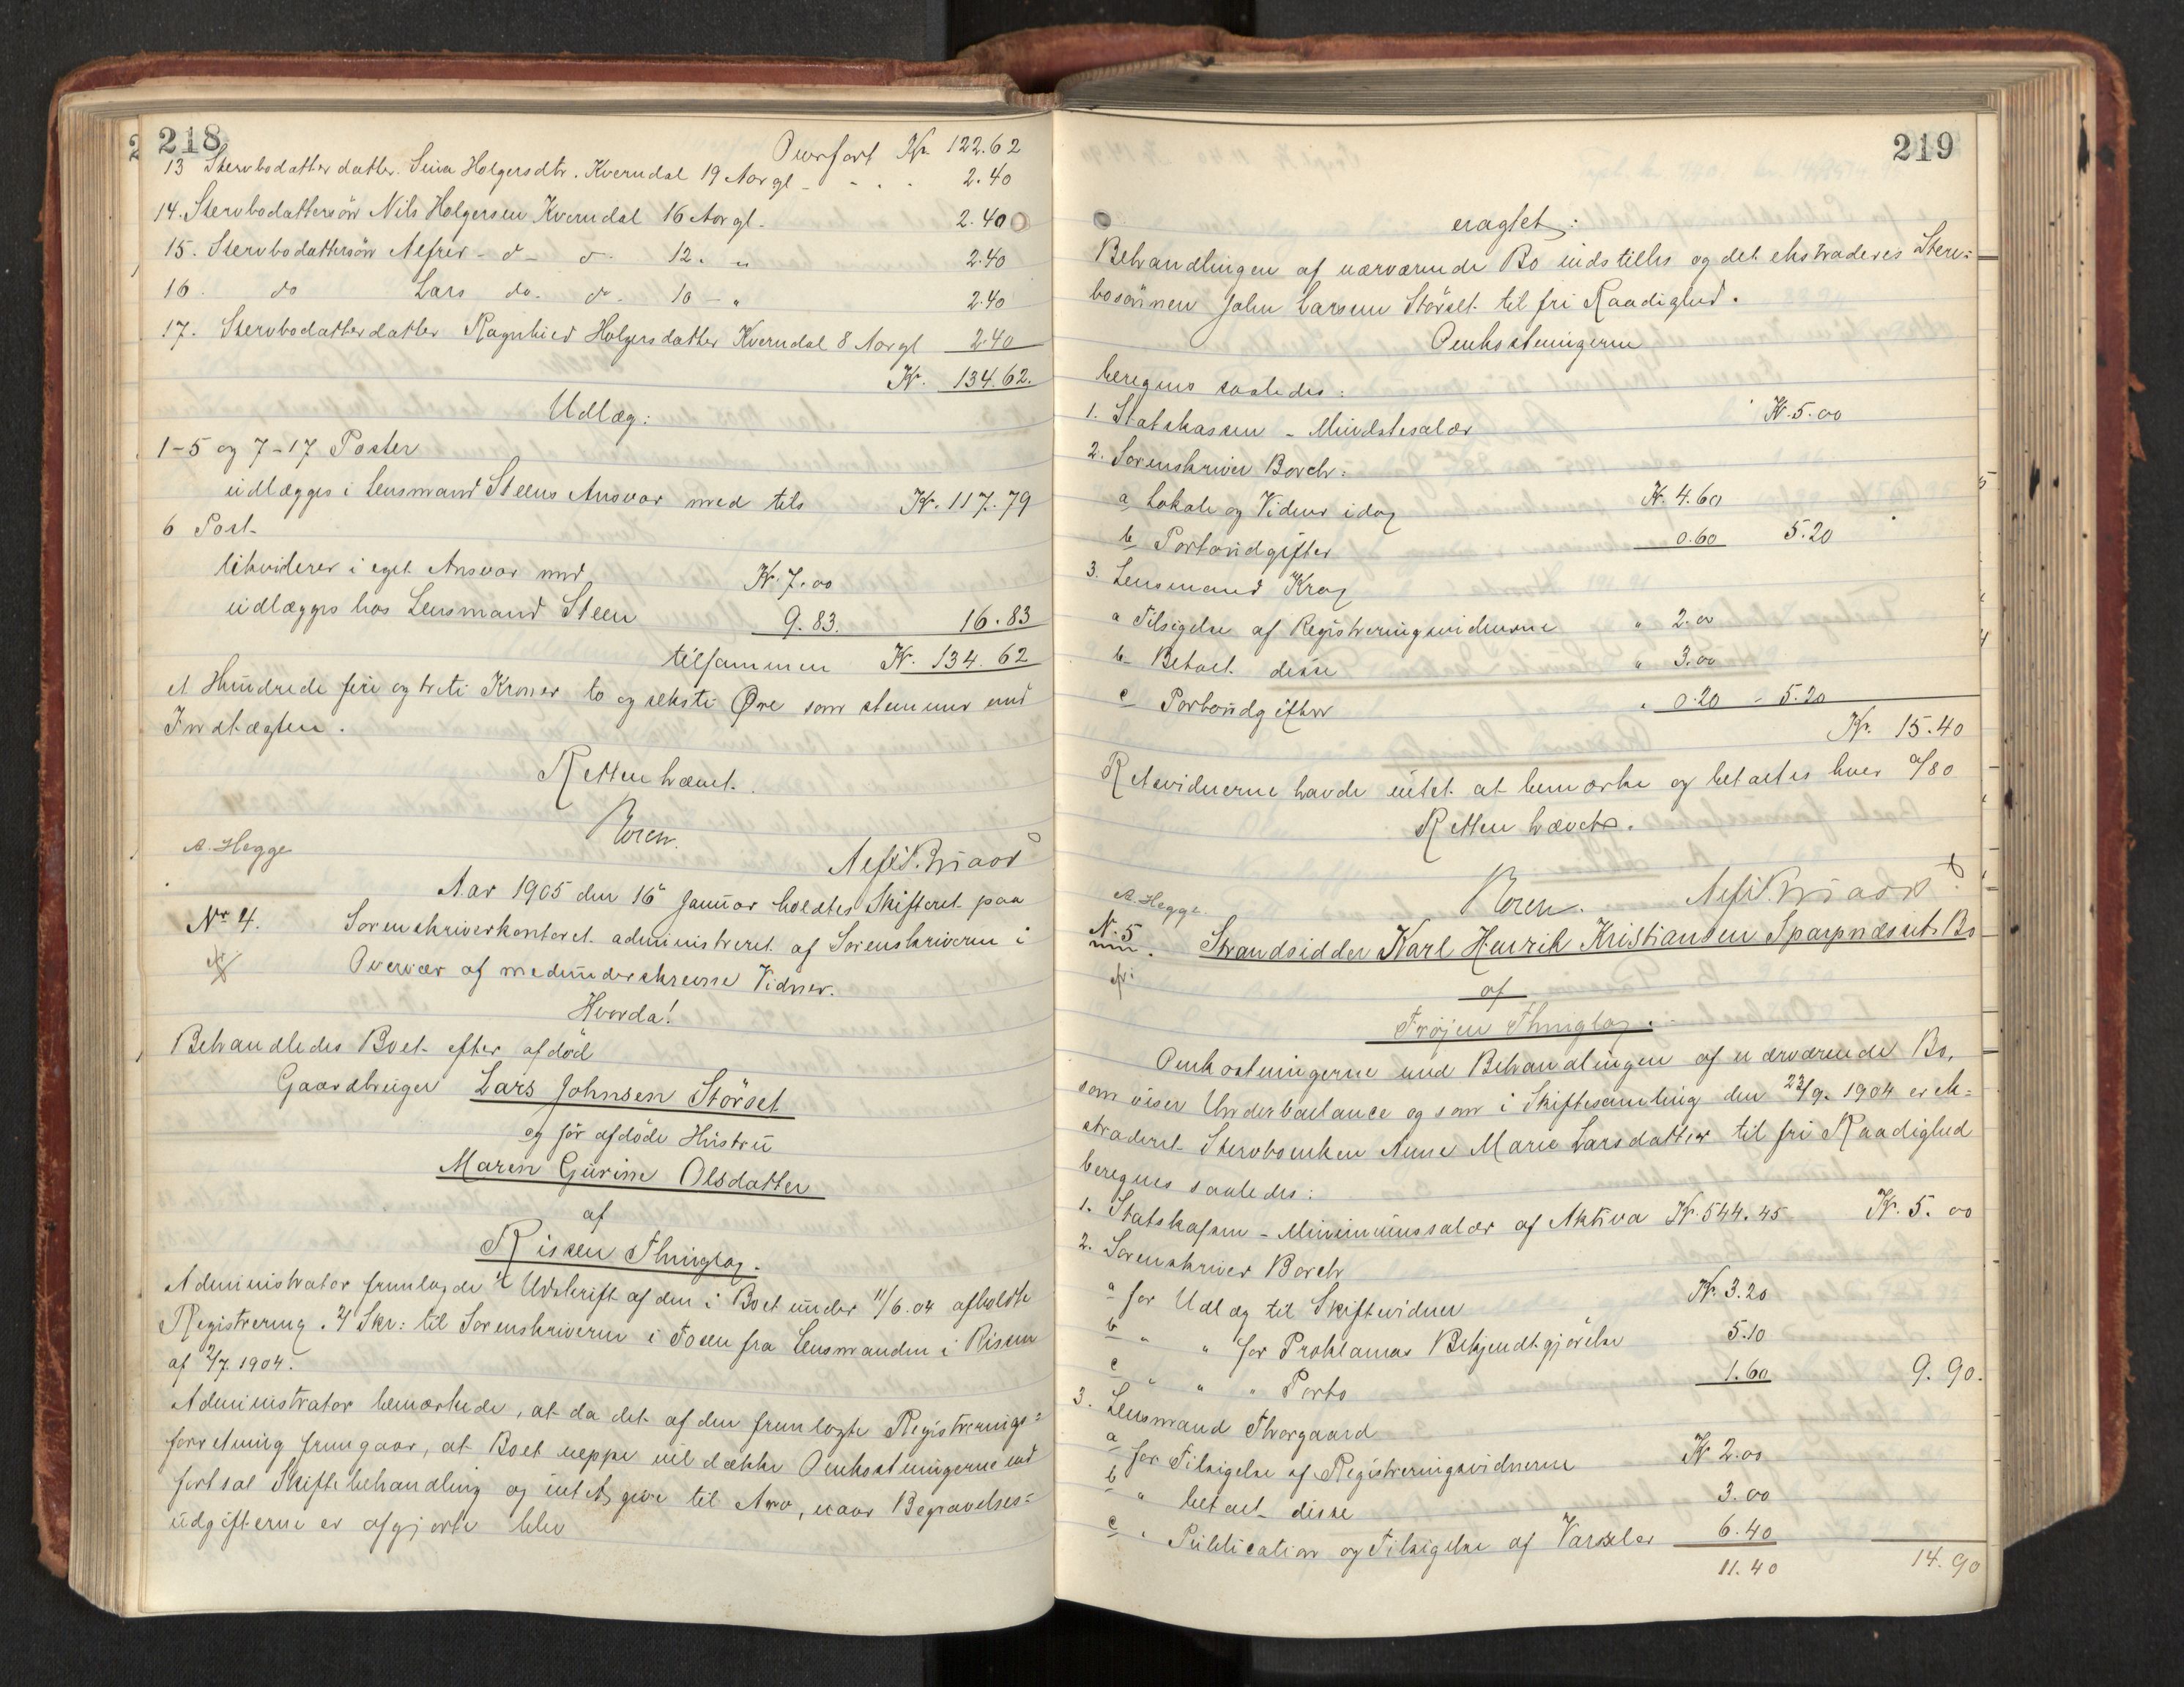 218
Overført Kr. 122.62
13 Stervbodatterdatter Sina Holgersdtr. Kverndal 19 Aar gl - - . . 2.40
14. Stervbodattersön Nils Holgersen Kverndal 16 Aar gl. 2.40
15. Stervbodattersön Alfred - d - d - 12. " 2.40
16. do Lars do. do. 10 - " 2.40
17. Stervbodatterdatter Ragnhild Holgersdatter Kverndal 8 Aar gl 2.40
Kr. 134.62.
Udlæg:
1-5 og 7-17 Poster
udlægges i Lensmand Steens Ansvar med tils Kr. 117.79
6 Post
likviderer i eget Ansvar med Kr. 7.00
udlægges hos Lensmand Steen 9.83. 16.83
tilsammen Kr. 134.62
et Hundrede fire og treti Kroner to og seksti Øre som stemmer med
Indtægten.
Retten hævet.
A. Hegge
Aar 1905 den 16 Januar holdtes Skifteret paa
No 4. Sorenskriverkontoret administreret af Sorenskriveren i
Overvær af medunderskrevne Vidner.
Hvorda!
Behandledes Boet efter afdöd
Gaardbruger Lars Johnsen Störset
og för afdöde Hustru
Maren Gurine Olsdatter
af
Rissen Thinglag.
Administrator fremlagde 1 Udskrift af den i Boet under 11/6.04 afholdte
Registrering. 2) Skr: til Sorenskriveren i Fosen fra Lensmanden i Rissen
af 2/7 1904.
Administrator bemærkede, at da det af den fremlagte Registrerings=
forretning fremgaar, at Boet neppe vil dække Omkostningerne ved
fortsat Skiftebehandling og intet give til Arv, naar Begravelses=
udgifterne er afgjorte blev
219
eragtet:
Behandlingen af nærværende Bo indstilles og det ekstraderes Sterv=
bosönnen John Larsen Störset til fri Raadighed.
Omkostningerne
beregnes saaledes:
1. Statskassen - Mindstesalær Kr. 5.00
2. Sorenskriver Borch:
a Lokale og Vidner idag Kr. 4.60
b Portoudgifter 0.60 5.20
3. Lensmand Krag
a Tilsigelse af Registreringsvidnerne " 2.00
b Betalt disse " 3.00
c Portoudgifter " 0.20 - 5.20
Kr. 15.40
Retsvidnerne havde intet at bemærke og betaltes hver 0/80
Retten hævet.
A. Hegge.
N. 5 Strandsidder Karl Henrik Kristiansen Sparpnæsets Bo
af
Fröjen Thinglag.
Omkostningerne med Behandlingen af nærværende Bo,
som viser Underballance og som i Skiftesamling den 23/9. 1904 er ek=
straderet Stervboenken Anne Marie Larsdatter til fri Raadighed
beregnes saaledes:
1. Statskassen - Minimumssalær af Aktiva Kr. 544.45 Kr. 5.00
2. Sorenskriver Borch
a for Udlæg til Skiftevidner Kr. 3.20
b " " for Proklamas Bekjendtgjörelse 5.10
c " " " Porto 1.60 9.90.
3. Lensmand Thorgaard
a for Tilsigelse af Registreringsvidnerne Kr 2.00
b " betalt disse 3.00
c " Publication og Tilsigelse af Varsler 6.40
11.40 14.90